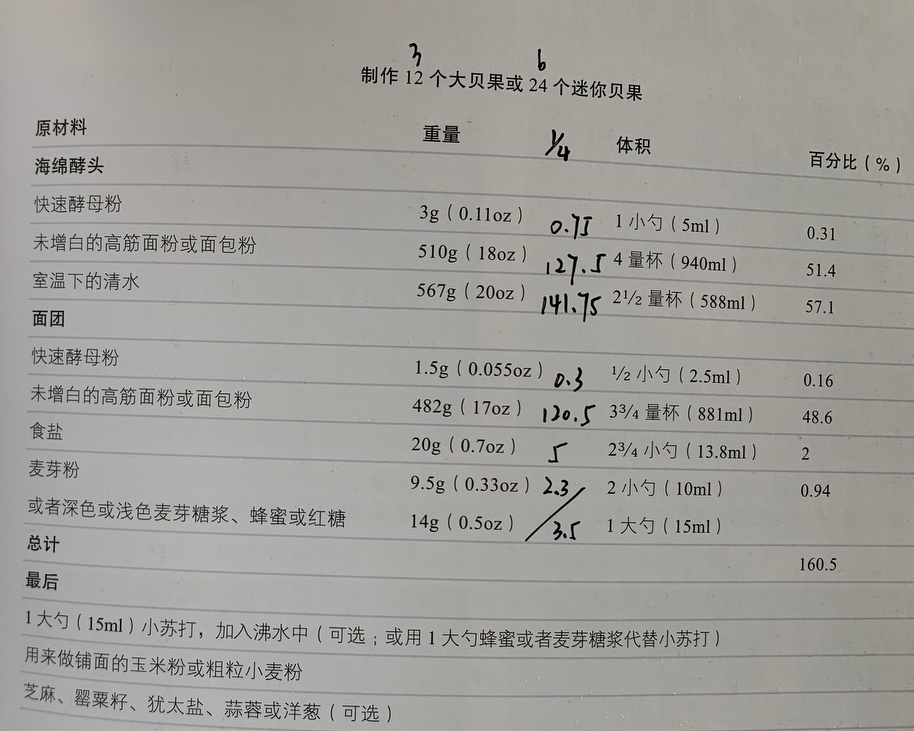 3 6
制作 12 个大贝果或 24 个迷你贝果
原材料 重量 1/4 体积 百分比（%）
海绵酵头
快速酵母粉 3g（0.11oz） 0.75 1 小勺（5ml） 0.31
未增白的高筋面粉或面包粉 510g（18oz） 127.5 4 量杯（940ml） 51.4
室温下的清水 567g（20oz） 141.75 2½ 量杯（588ml） 57.1
面团
快速酵母粉 1.5g（0.055oz） 0.3 ½ 小勺（2.5ml） 0.16
未增白的高筋面粉或面包粉 482g（17oz） 120.5 3¾ 量杯（881ml） 48.6
食盐 20g（0.7oz） 5 2¾ 小勺（13.8ml） 2
麦芽粉 9.5g（0.33oz） 2.3 2 小勺（10ml） 0.94
或者深色或浅色麦芽糖浆、蜂蜜或红糖 14g（0.5oz） 3.5 1 大勺（15ml）
总计 160.5
最后
1 大勺（15ml）小苏打，加入沸水中（可选；或用 1 大勺蜂蜜或者麦芽糖浆代替小苏打）
用来做铺面的玉米粉或粗粒小麦粉
芝麻、罂粟籽、犹太盐、蒜蓉或洋葱（可选）